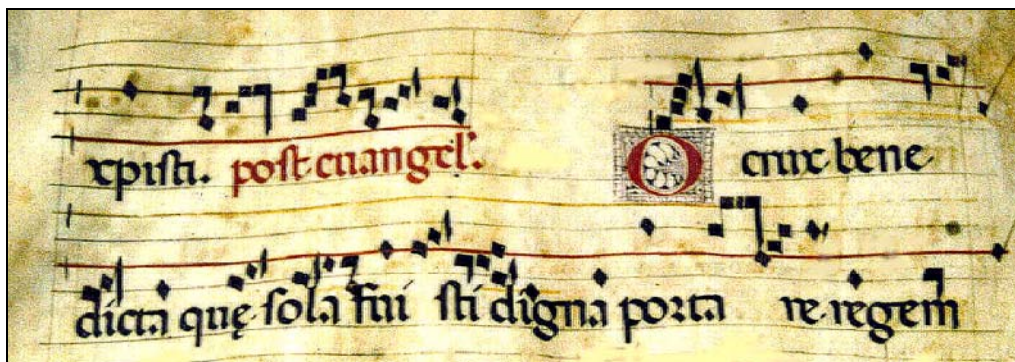 xpisti. post euangel'. O crux bene
dicta quę sola fui sti digna porta re regem